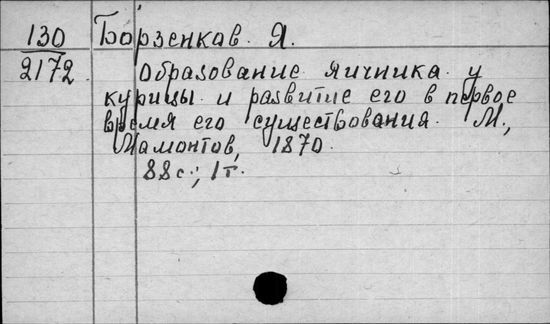 130 Борзенков. Я.
2172. Образование яичника у
курицы и развитие его в первое
время его существования. М.,
Мамонтов, 1870.
88 с.; 1 т.